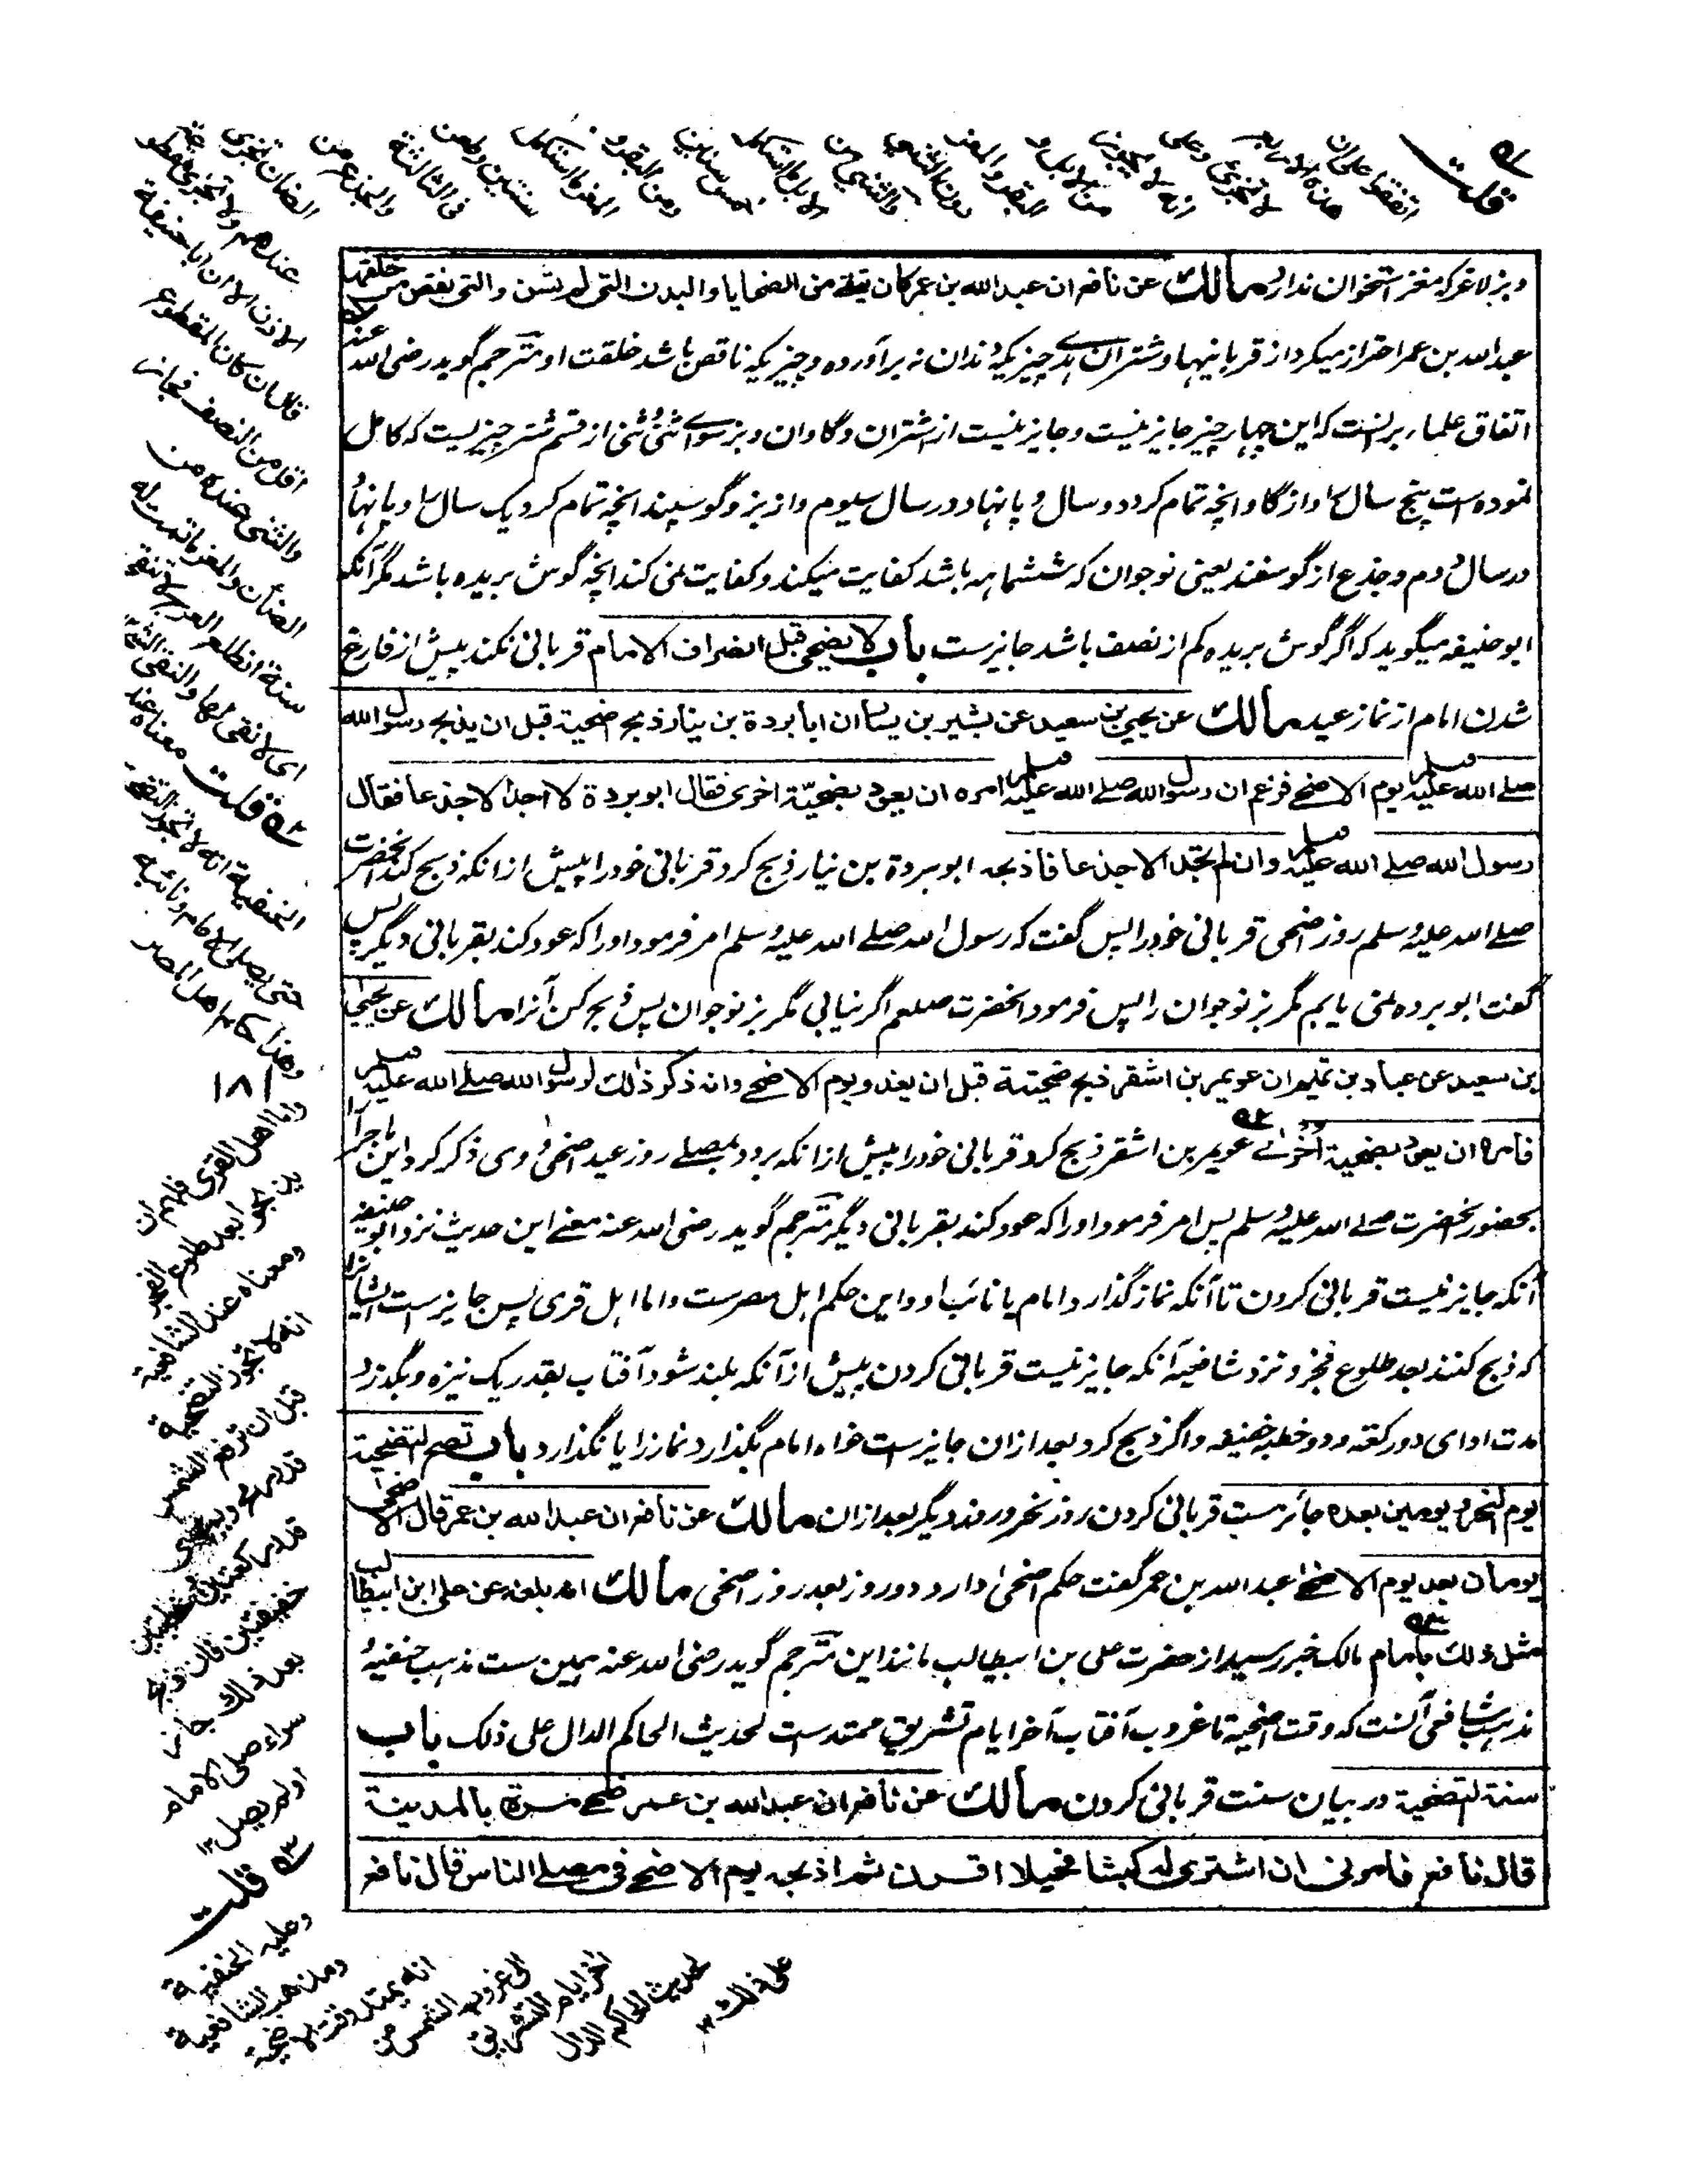 وبز لاغر که مغز استخوان ندارد مالك عن نافع ان عبد الله بن عمر كان يتقي من الضحايا والبدن التي لم تسن والتي نقص من خلقها
عبد الله بن عمر احتراز میکرد از قربانیها و شتران هدی چیزیکه دندان نه برآورده و چیزیکه ناقص باشد خلقت او مترجم گوید رضی الله عنه
اتفاق علماء برانست که این چهار چیز جایز نیست و جایز نیست از شتران و گاوان و بز سوای ثنی ثنی از قسم شتر چیزیست که کامل
نموده ست پنج سال را و از گاو انچه تمام کرد دو سال و پا نهاد در سال سیوم و از بز و گوسپند انچه تمام کرد یک سال را و پا نهاد
در سال دوم و جذع از گوسفند یعنی نوجوان که ششماهه باشد کفایت میکند و کفایت نمی کند انچه گوش بریده باشد مگر آنکه
ابو حنیفه میگوید که اگر گوش بریده کم از نصف باشد جایزست باب لا يضحى قبل انصراف الامام قربانی نکند پیش از فارغ
شدن امام از نماز عید مالك عن يحيى بن سعيد عن بشير بن يسار ان ابا بردة بن نيار ذبح ضحية قبل ان يذبح رسول الله
صلے الله عليه وسلم يوم الاضحى فزعم ان رسول الله صلے الله عليه وسلم امره ان يعود بضحية اخرى فقال ابو بردة لا اجد الا جذعا فقال
رسول الله صلے الله عليه وسلم وان لم تجد الا جذعا فاذبحه ابو بردة بن نیار ذبح کرد قربانی خود را پیش از انکه ذبح کند آنحضرت
صلے الله علیه وسلم روز اضحی قربانی خود را پس گفت که رسول الله صلے الله علیه وسلم امر فرمود او را که عود کند بقربانی دیگر پس
گفت ابو برده نمی یابم مگر بز نوجوان را پس فرمود انحضرت صلعم اگر نیابی مگر بز نوجوان پس ذبح کن آنرا مالك عن يحيى
بن سعيد عن عباد بن تميم ان عويمر بن اشقر ذبح ضحيتة قبل ان يغدو يوم الاضحى وانه ذكر ذلك لرسول الله صلے الله عليه وسلم
فامره ان يعود بضحية اخرى عویمر بن اشقر ذبح کرد قربانی خود را پیش از انکه برود بمصلے روز عید اضحی و وی ذکر کرد این ماجرا را
بحضور آنحضرت صلے الله علیه وسلم پس امر فرمود او را که عود کند بقربانی دیگر مترجم گوید رضی الله عنه معنے این حدیث نزد ابو حنیفه
آنکه جایز نیست قربانی کردن تا آنکه نماز گذارد امام یا نائب او و این حکم اهل مصرست واما اهل قری پس جایزست ایشانرا
که ذبح کنند بعد طلوع فجر و نزد شافعیه آنکه جایز نیست قربانی کردن پیش از آنکه بلند شود آفتاب بقدر یک نیزه و بگذرد
مدت ادای دو رکعته و دو خطبه خفیفه و اگر ذبح کرد بعد ازان جایزست خواه امام بگذارد نماز را یا نگذارد باب تصح التضحية
يوم النحر ويومين بعده جائزست قربانی کردن روز نحر و روز دیگر بعد ازان مالك عن نافع ان عبد الله بن عمر قال الاضحى
يومان بعد يوم الاضحى عبد الله بن عمر گفت حکم اضحی دارد دو روز بعد روز اضحی مالك انه بلغه عن علي ابن ابيطالب
مثل ذلك بامام مالک خبر رسید از حضرت علی بن ابیطالب مانند این مترجم گوید رضی الله عنه همین ست مذهب حنفیه و
مذهب شافعی آنست که وقت اضحیة تا غروب آفتاب آخر ایام تشریق ممتدست لحديث الحاكم الدال على ذلك باب
سنة التضحية در بیان سنت قربانی کردن مالك عن نافع ان عبد الله بن عمر ضحى مرة بالمدينة
قال نافع فامرني ان اشتري له كبشا فحيلا اقرن ثم اذبحه يوم الاضحى في مصلى الناس قال نافع
قلت
اتفقوا على ان
هذه الاربعة
لا تجزئ وعلى
انه لا يجوز
من الابل و
البقر والمعز
دون الثني
والثني من
الابل ما استكمل
خمس سنين
ومن البقر و
المعز ما استكمل
سنتين وطعن
في الثالثة
والجذع من
الضان تجزئ
عندهم ولا تجزئ مقطوع
الاذن الا ان ابا حنيفة
قال ان كان المقطوع
اقل من النصف فجائز
والثني عنده من
الضأن والمعز ما تمت له
سنة
قلت معناه عند
الحنفية انه لا تجوز التضحية
حتى يصلي الامام او نائبه
وهذا حكم اهل المصر
١٨١
واما اهل القرى فلهم ان
يذبحوا بعد طلوع الفجر
ومعناه عند الشافعية
انه لا تجوز التضحية
قبل ان ترتفع الشمس
قدر رمح ويمضي
قدر ركعتين وخطبتين
خفيفتين فان ذبح
بعد ذلك جاز
سواء صلى الامام
اولم يصل ١٢
قلت
وعليه الحنفية
ومذهب الشافعية
انه يمتد وقت الاضحية
الى غروب الشمس من
اخر ايام التشريق
لحديث الحاكم الدال
على ذلك ١٢